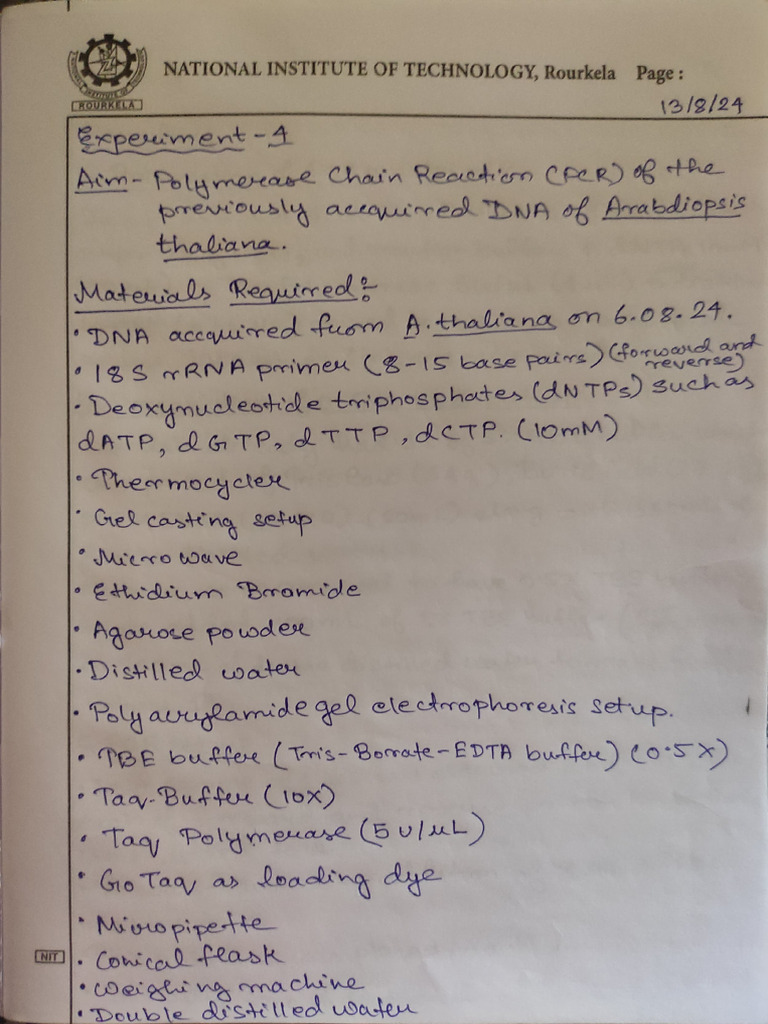 NATIONAL INSTITUTE OF TECHNOLOGY, Rourkela Page :
ROURKELA
13/8/24
Experiment-4
Aim- Polymerase Chain Reaction (PCR) of the
previously accquirred DNA of Arabdiopsis
thaliana.
Materials Required:-
• DNA accquired from A. thaliana on 6.08.24.
• 18S rRNA primer (8-15 base pairs) (forward and
reverse)
• Deoxynucleotide triphosphates (dNTPs) such as
dATP, dGTP, dTTP, dCTP. (10mM)
• Thermocycler
• Gel casting setup
• Microwave
• Ethidium Bromide
• Agarose powder
• Distilled water
• Polyacrylamide gel electrophoresis setup.
• TBE buffer (Tris-Borate-EDTA buffer) (0.5X)
• Taq-Buffer (10X)
• Taq Polymerase (5 U/µL)
• GoTaq as loading dye
• Micropipette
NIT • Conical flask
• Weighing machine
• Double distilled water